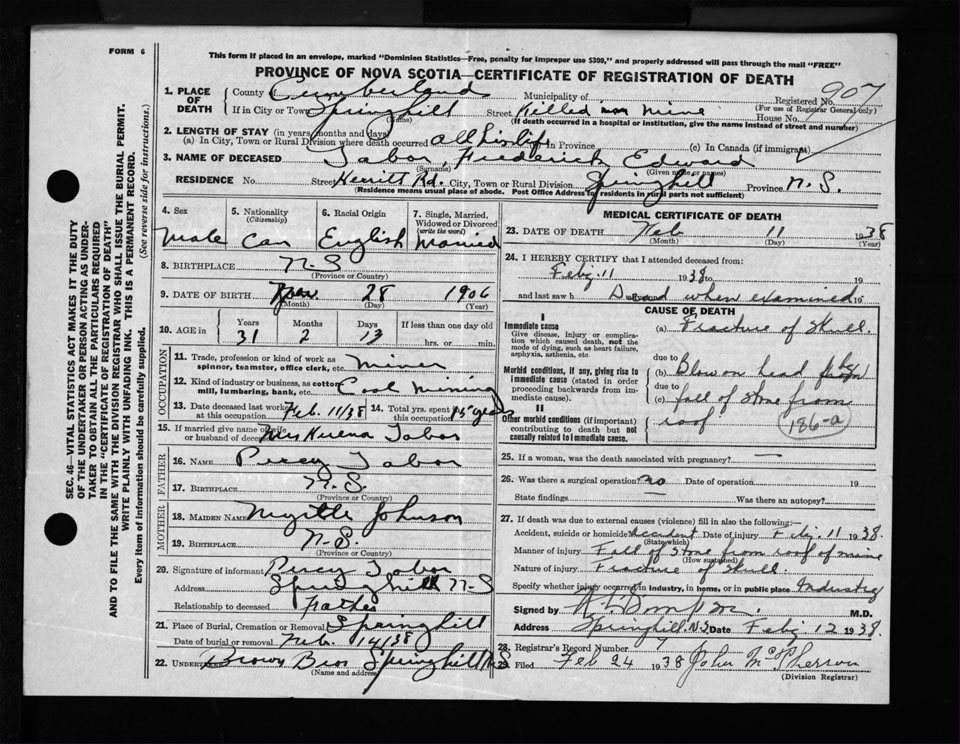 FORM 6
This form if placed in an envelope, marked "Dominion Statistics—Free, penalty for improper use $300," and properly addressed will pass through the mail "FREE"
PROVINCE OF NOVA SCOTIA—CERTIFICATE OF REGISTRATION OF DEATH
SEC. 46—VITAL STATISTICS ACT MAKES IT THE DUTY
OF THE UNDERTAKER OR PERSON ACTING AS UNDER-
TAKER TO OBTAIN ALL THE PARTICULARS REQUIRED
IN THE "CERTIFICATE OF REGISTRATION OF DEATH"
AND TO FILE THE SAME WITH THE DIVISION REGISTRAR WHO SHALL ISSUE THE BURIAL PERMIT.
WRITE PLAINLY WITH UNFADING INK. THIS IS A PERMANENT RECORD.
Every item of information should be carefully supplied. (See reverse side for instructions.)
1. PLACE OF DEATH County of Cumberland Municipality of Registered No. 907
(For use of Registrar General only)
If in City or Town Springhill Street Killed in mine House No.
(Name) (If death occurred in a hospital or institution, give the name instead of street and number)
2. LENGTH OF STAY (in years, months and days)
(a) In City, Town or Rural Division where death occurred all his life in Province (c) In Canada (if immigrant)
3. NAME OF DECEASED Tabor, Frederick Edward
(Surname) (Given name or names)
RESIDENCE No. Street Herritt Rd. City, Town or Rural Division Springhill Province N. S.
(Residence means usual place of abode. Post Office Address for residents in rural parts not sufficient)
4. Sex 5. Nationality (Citizenship) 6. Racial Origin 7. Single, Married, Widowed or Divorced (write the word)
Male Can English Married
8. BIRTHPLACE N. S
(Province or Country)
9. DATE OF BIRTH 28 1906
(Month) (Day) (Year)
10. AGE in Years Months Days If less than one day old
31 2 13 hrs. or min.
OCCUPATION
11. Trade, profession or kind of work as spinner, teamster, office clerk, etc. Miner
12. Kind of industry or business, as cotton mill, lumbering, bank, etc. Coal Mining
13. Date deceased last worked at this occupation Feb. 11/38 14. Total yrs. spent in this occupation 15 years
15. If married give name of wife or husband of deceased Mrs Tabor
FATHER
16. NAME Percy Tabor
17. BIRTHPLACE N. S.
(Province or Country)
MOTHER
18. MAIDEN NAME Myrtle Johnson
19. BIRTHPLACE N. S.
(Province or Country)
20. Signature of informant Percy Tabor
Address Springhill N-S
Relationship to deceased Father
21. Place of Burial, Cremation or Removal Springhill
Date of burial or removal Feb. 14/38
22. UNDERTAKER Brown Bros Springhill N S
(Name and address)
MEDICAL CERTIFICATE OF DEATH
23. DATE OF DEATH Feb 11 1938
(Month) (Day) (Year)
24. I HEREBY CERTIFY that I attended deceased from:
Feby. 11 1938 to 19
and last saw h Dead when examined 19
CAUSE OF DEATH
I
Immediate cause
Give disease, injury or complication which caused death, not the mode of dying, such as heart failure, asphyxia, asthenia, etc
(a) Fracture of Skull.
due to
Morbid conditions, if any, giving rise to immediate cause (stated in order proceeding backwards from immediate cause).
(b) Blow on head by
due to
(c) fall of stone from
roof
186-a
II
Other morbid conditions (if important) contributing to death but not causally related to immediate cause.
25. If a woman, was the death associated with pregnancy? —
26. Was there a surgical operation? no Date of operation 19
State findings Was there an autopsy?
27. If death was due to external causes (violence) fill in also the following:
Accident, suicide or homicide? Accident Date of injury Feby. 11 1938.
(State which)
Manner of injury Fall of stone from roof of mine
(How sustained)
Nature of injury Fracture of Skull.
Specify whether injury occurred in industry, in home, or in public place Industry
Signed by M.D.
Address Springhill N.S. Date Feby 12 1938.
28. Registrar's Record Number
29. Filed Feb 24 1938 John McPherson
(Division Registrar)